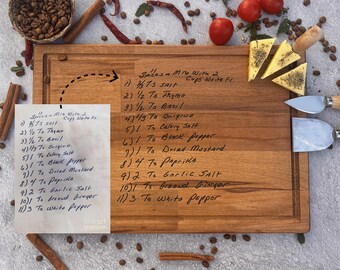 11 Spices - Mix With 2
Cups White Fl.
1) 2/3 Ts Salt
2) 1/2 Ts Thyme
3) 1/2 Ts Basil
4) 1/3 Ts Origino
5) 1 Ts Celery Salt
6) 1 Ts Black Pepper
7) 1 Ts Dried Mustard
8) 4 Ts Paprika
9) 2 Ts Garlic Salt
10) 1 Ts Ground Ginger
11) 3 Ts White Pepper
11 Spices - Mix With 2
Cups White Fl.
1) 2/3 Ts Salt
2) 1/2 Ts Thyme
3) 1/2 Ts Basil
4) 1/3 Ts Origino
5) 1 Ts Celery Salt
6) 1 Ts Black Pepper
7) 1 Ts Dried Mustard
8) 4 Ts Paprika
9) 2 Ts Garlic Salt
10) 1 Ts Ground Ginger
11) 3 Ts White Pepper